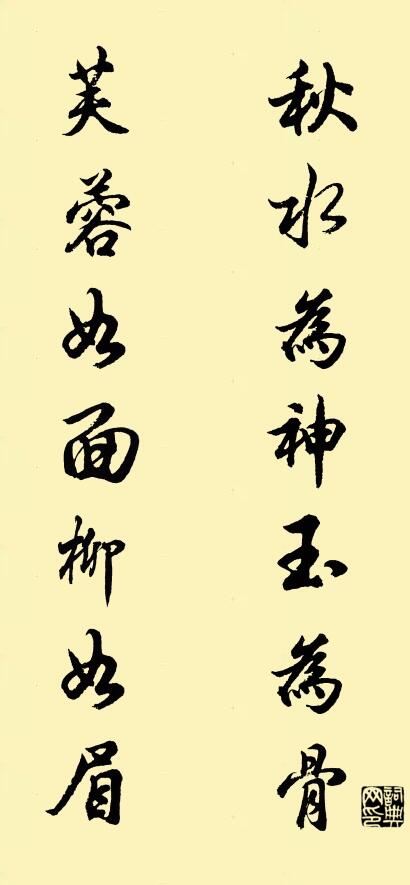 秋水為神玉為骨
芙蓉如面柳如眉
詞典网印